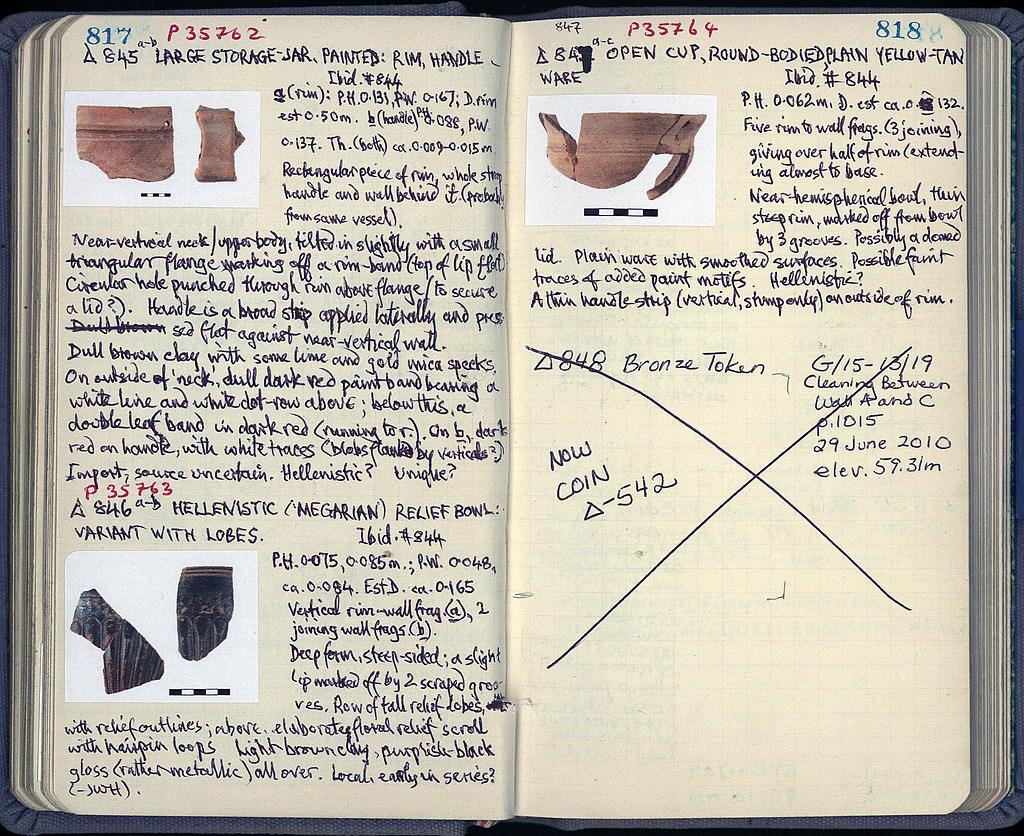 817 P 35762
Δ 845 a-b LARGE STORAGE-JAR, PAINTED: RIM, HANDLE
Ibid. #844
a (rim): P.H. 0.131, P.W. 0.167; D. rim
est 0.50m. b (handle) P.H. 0.088, P.W.
0.137. Th. (both) ca. 0.009-0.015m
Rectangular piece of rim, whole strap
handle and wall behind it (probably
from same vessel).
Near-vertical neck/upper body, tilted in slightly with a small
triangular flange marking off a rim-band (top of lip flat)
Circular hole punched through rim above flange (to secure
a lid?). Handle is a broad strip applied laterally and pres-
Dull brown sed flat against near-vertical wall.
Dull brown clay with some lime and gold mica specks.
On outside of 'neck', dull dark red paint band bearing a
white line and white dot-row above; below this, a
double leaf band in dark red (running to r.). On b, dark
red on handle, with white traces (blobs flanked by verticals?)
Import, source uncertain. Hellenistic? Unique?
P 35763
Δ 846 a-b HELLENISTIC ('MEGARIAN') RELIEF BOWL:
VARIANT WITH LOBES. Ibid. #844
P.H. 0.075, 0.085m.; P.W. 0.048,
ca. 0.084. Est. D. ca. 0.165
Vertical rim-wall frag. (a), 2
joining wall frags. (b).
Deep form, steep-sided; a slight
lip marked off by 2 scraped groo-
ves. Row of tall relief lobes,
with relief outlines; above, elaborate floral relief scroll
with hairpin loops Light brown clay, purplish-black
gloss (rather metallic) all over. Local, early in series?
(-JWH).
847 P 35764 818
Δ 847 a-c OPEN CUP, ROUND-BODIED, PLAIN YELLOW-TAN
WARE Ibid. #844
P.H. 0.062m, D. est ca. 0.132.
Five rim to wall frags. (3 joining),
giving over half of rim (extend-
ing almost to base.
Near-hemispherical bowl, thin
steep rim, marked off from bowl
by 3 grooves. Possibly a domed
lid. Plain ware with smoothed surfaces. Possible faint
traces of added paint motifs. Hellenistic?
A thin handle strip (vertical, stump only) on outside of rim.
Δ 848 Bronze Token G/15-13/19
Cleaning Between
Wall A and C
p.1015
29 June 2010
elev. 59.31m
NOW
COIN
Δ-542